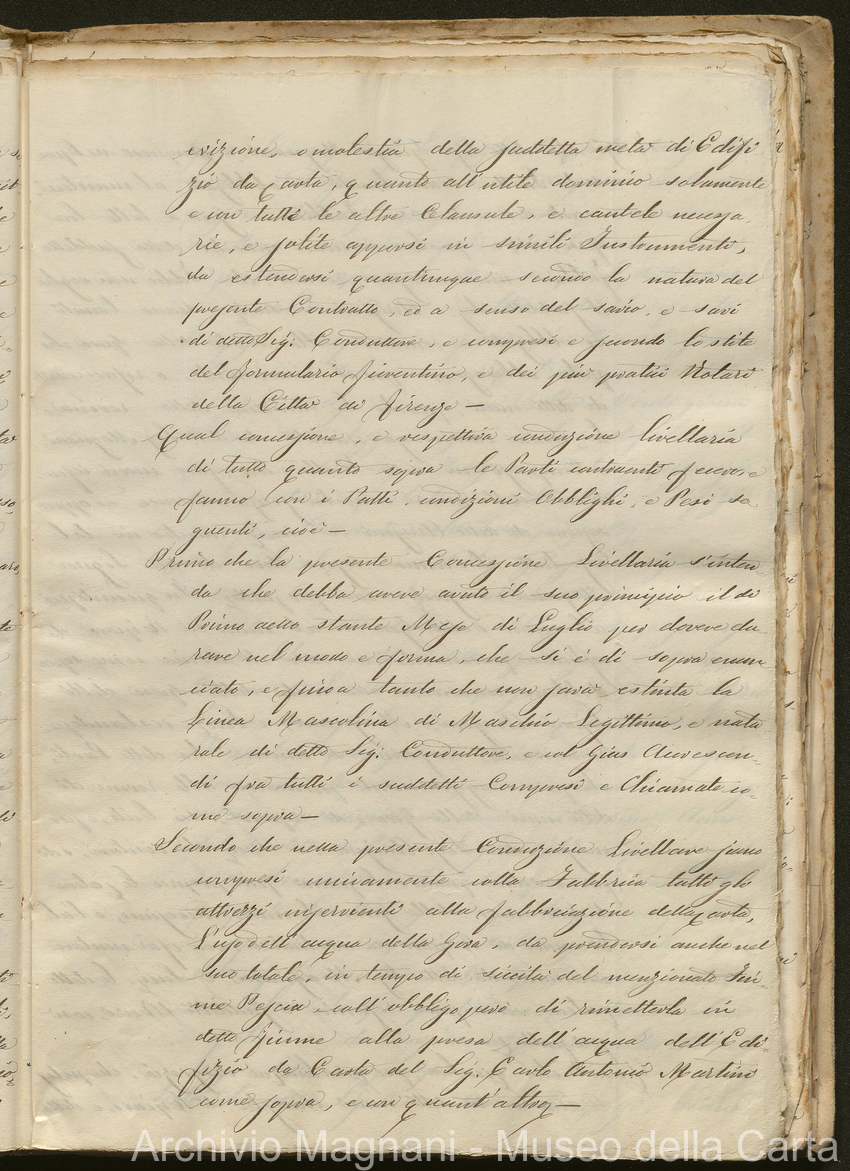 evizione, o molestia della suddetta metà di Edifi
zio da Carta, quanto all'utile dominio solamente
e con tutte le altre Clausule, e cautele necessa
rie, e solite apporsi in simili Instrumenti,
da estendersi quantunque secondo la natura del
presente Contratto, ed a senso del savio, e savi
di detto Sig: Conduttore, e compresi e secondo lo stile
del formulario fiorentino, e dei più pratici Notari
della Città di Firenze —
Qual concessione, e respettiva conduzione livellaria
di tutto quanto sopra le Parti contraenti fecero e
fanno con i Patti, condizioni Obblighi, e Pesi se
guenti, cioè —
Primo che la presente Concessione Livellaria s'inten
da che debba avere avuto il suo principio il dì
Primo dello stante Mese di Luglio per dovere du
rare nel modo e forma, che si è di sopra enun
ciato, e fino a tanto che non sarà estinta la
Linea Mascolina di Maschio Legittimo, e natu
rale di detto Sig: Conduttore, e col Gius Accrescen-
di fra tutti i suddetti Compresi e Chiamati co-
me sopra —
Secondo che nella presente Conduzione Livellare sono
compresi unicamente colla Fabbrica tutti gli
attrezzi inservienti alla fabbricazione della Carta,
L'uso dell'acqua della Gora, da prendersi anche nel
suo totale, in tempo di siccità del menzionato Fiu-
me Pescia, coll'obbligo però di rimetterla in
detto fiume alla presa dell'acqua dell'Edi-
fizio da Carta del Sig: Carlo Antonio Martini
come sopra, e con quant'altro —
Archivio Magnani - Museo della Carta